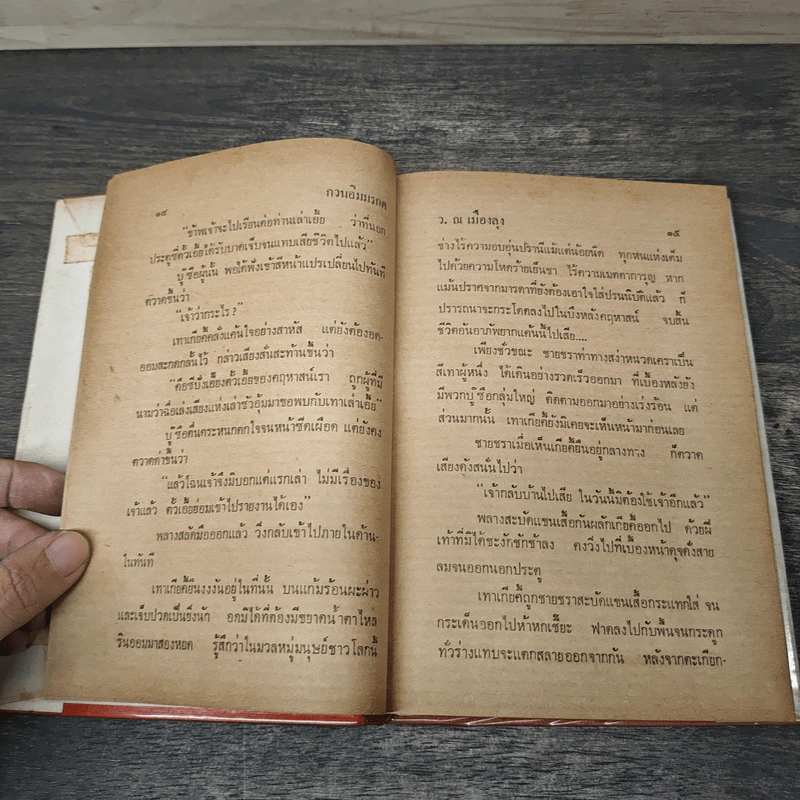 ๑๔
กวนอิมมรกต
"ข้าพเจ้าจะไปเรียนต่อท่านเล่าเอี้ย ว่าที่นอก
ประตูซี่คั้วเอี้ยได้รับบาดเจ็บจนแทบเสียชีวิตไปแล้ว"
บู๊ซือผู้นั้น พอได้ฟังเข้าสีหน้าแปรเปลี่ยนไปทันที
ตวาดขึ้นว่า
"เจ้าว่ากระไร?"
เทาเกียคี้คลั่งแค้นใจอย่างสาหัส แต่ยังต้องอด-
ออมสะกดกลั้นไว้ กล่าวเสียงสั่นสะท้านขึ้นว่า
"คือซี่ปังเอี้ยงคั้วเอี้ยของคฤหาสน์เรา ถูกผู้ที่มี
นามว่าฉื่อเล่งเสียงแห่งเล่าซัวอุ้มมาขอพบกับเทาเล่าเอี้ย"
บู๊ซือตื่นตระหนกตกใจจนหน้าซีดเผือด แต่ยังคง
ตวาดคำขึ้นว่า
"แล้วไฉนเจ้าจึงมิบอกแต่แรกเล่า ไม่มีเรื่องของ
เจ้าแล้ว คั้วเอี้ยย่อมเข้าไปรายงานได้เอง"
พลางสลัดมือออกแล้ว วิ่งกลับเข้าไปภายในด้าน-
ในทันที
เทาเกียคี้ยืนงงงันอยู่ในที่นั้น บนแก้มร้อนผะผ่าว
และเจ็บปวดเป็นยิ่งนัก อดมิได้ที่ต้องมีขยาดน้ำตาไหล
รินออมมาสองหยด รู้สึกว่าในมวลหมู่มนุษย์ชาวโลกนี้
ว. ณ เมืองลุง
๑๕
ช่างไร้ความอบอุ่นปรานีแม้แต่น้อยนิด ทุกหนแห่งเต็ม
ไปด้วยความโหดร้ายเย็นชา ไร้ความเมตตาการุญ หาก
แม้นปราศจากมารดาที่ยังต้องเอาใจใส่ปรนนิบัติแล้ว ก็
ปรารถนาจะกระโดดลงไปในบึงหลังคฤหาสน์ จบสิ้น
ชีวิตอันอาภัพยากแค้นนี้ไปเสีย....
เพียงชั่วขณะ ชายชราท่าทางสง่าหนวดเคราเป็น
สีเทาผู้หนึ่ง ได้เดินอย่างรวดเร็วออกมา ที่เบื้องหลังยัง
มีพวกบู๊ซือกลุ่มใหญ่ ติดตามออกมาอย่างเร่งร้อน แต่
ส่วนมากนั้น เทาเกียคี้ยังมิเคยจะเห็นหน้ามาก่อนเลย
ชายชราเมื่อเห็นเกียคี้ยืนอยู่กลางทาง ก็ตวาด
เสียงดังสนั่นไปว่า
"เจ้ากลับบ้านไปเสีย ในวันนี้มิต้องใช้เจ้าอีกแล้ว"
พลางสะบัดแขนเสื้อกันผลักเกียคี้ออกไป ด้วยฝี
เท้าที่มิได้ชะงักชักช้าลง คงวิ่งไปที่เบื้องหน้าดุจดั่งสาย
ลมจนออกนอกประตู
เทาเกียคี้ถูกชายชราสะบัดแขนเสื้อกระแทกใส่ จน
กระเด็นออกไปห้าหกเชี๊ยะ ฟาดลงไปกับพื้นจนกระดูก
ทั่วร่างแทบจะแตกสลายออกจากกัน หลังจากตะเกียก-